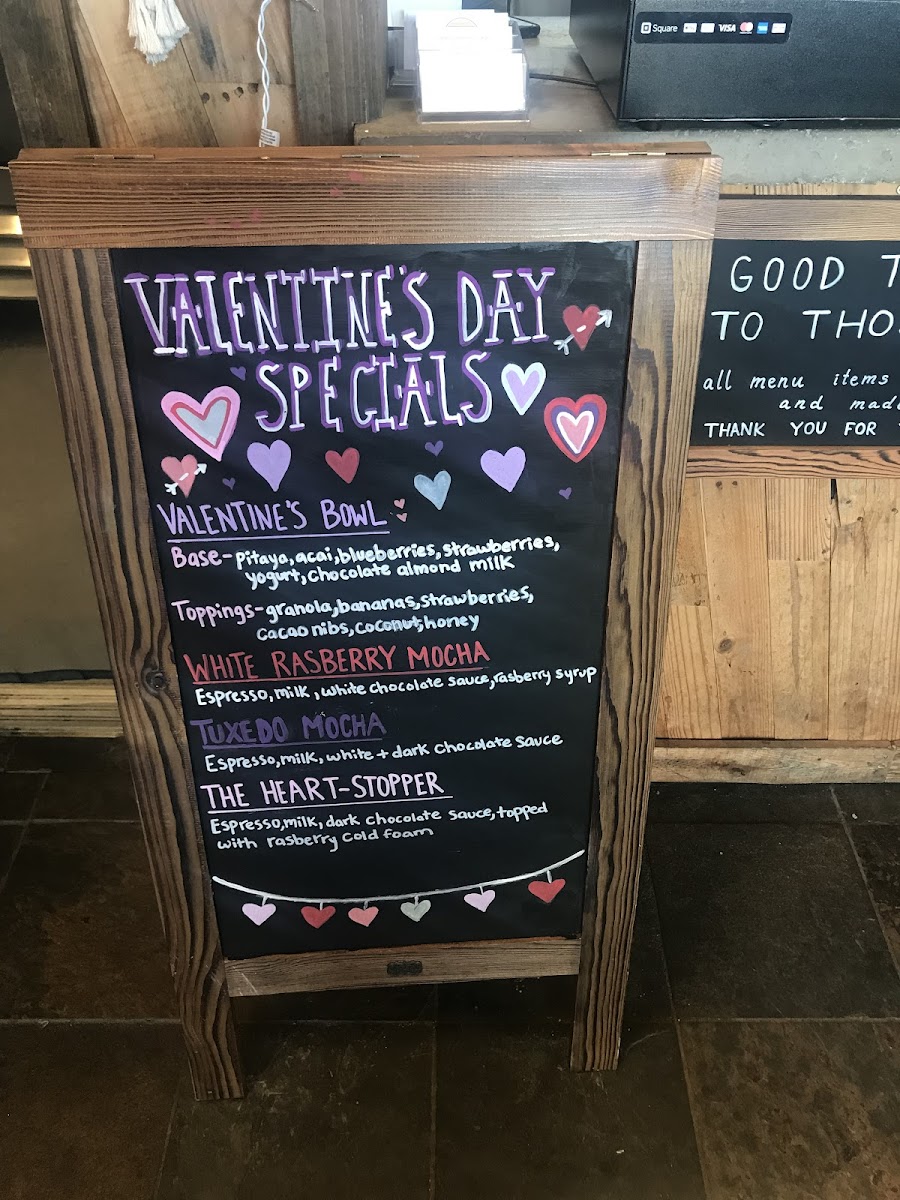 Square VISA
VALENTINE'S DAY
SPECIALS
VALENTINE'S BOWL
Base- pitaya, acai, blueberries, strawberries,
yogurt, chocolate almond milk
Toppings- granola, bananas, strawberries,
cacao nibs, coconut, honey
WHITE RASBERRY MOCHA
Espresso, milk, white chocolate sauce, rasberry syrup
TUXEDO MOCHA
Espresso, milk, white + dark chocolate sauce
THE HEART-STOPPER
Espresso, milk, dark chocolate sauce, topped
with rasberry cold foam
GOOD T
TO THO
all menu items
and mad
THANK YOU FOR